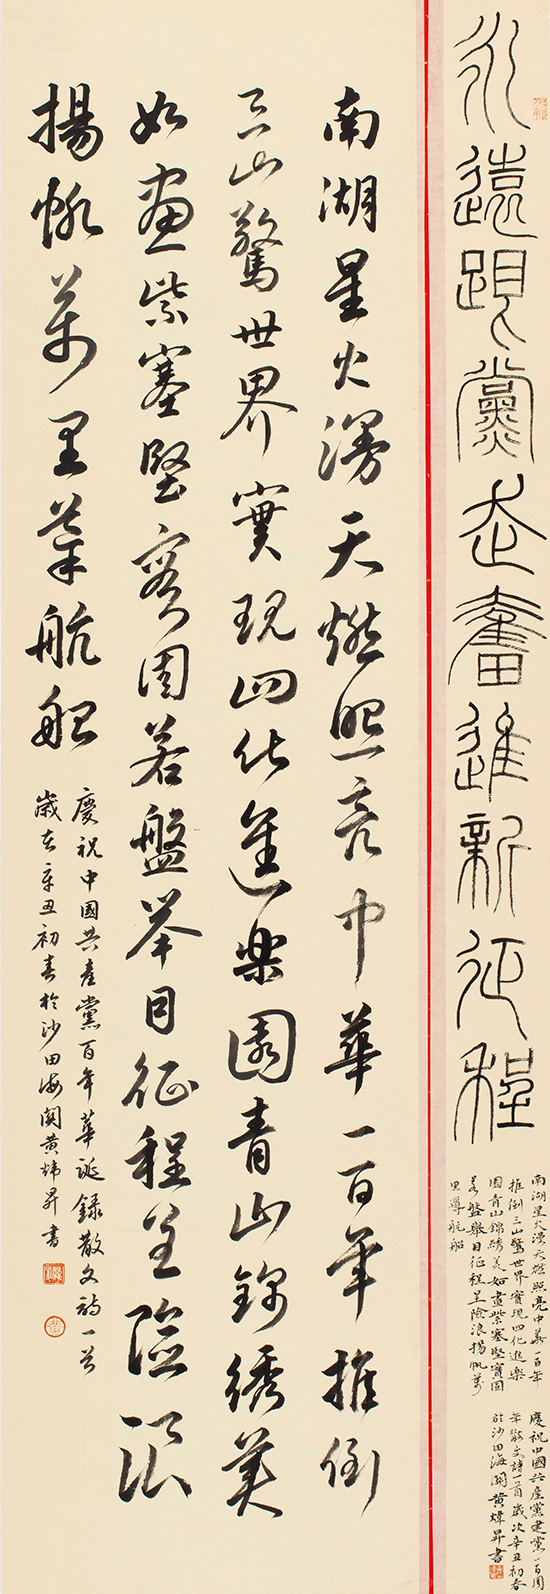 永遠跟黨走奮進新征程
南湖星火漫天燃照亮中華一百年
推倒三山驚世界實現四化進樂
園青山錦綉美如畫紫塞堅實固
若盤舉目征程呈險浪揚帆萬
里導航船
慶祝中國共產黨建黨一百周
年散文詩一首歲次辛丑初春
於沙田海關黃煒昇書
南湖星火漫天燃照亮中華一百年推倒
三山驚世界實現四化進樂園青山錦綉美
如畫紫塞堅實固若盤举目征程呈險浪
揚帆萬里航船
慶祝中國共產黨百年華誕錄散文詩一首
歲在辛丑初春於沙田海関黃煒昇書